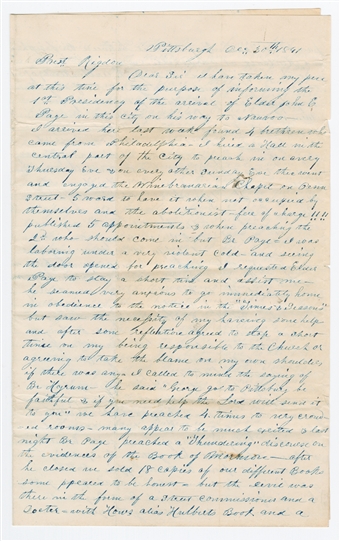 Pittsburgh Oct 20th 1841
Prest Rigdon
Dear Sir I have taken my pen
at this time for the purpose of informing the
1st Presidency of the arrival of Elder John E
Page in this city on his way to Nauvoo—
I arrived here last week found 4 brethren who
came from Philadelphia—I hired a Hall in the
central part of the City to preach in on every
Thursday Eve & on every other Sunday Eve, then went
and engaged the Chapel on
Street— 5 ward to have it when not occupied by
themselves and the abolitionist—free of charge!!!!
published 5 appointments & when preaching the
2d who should come in but Br Page—I was
laboring under a very violent cold—and seeing
the door opened for preaching I requested Elder
Page to stay a short time and assist me—
he seamed very anxious to go immediately home
in obedience to the notice in the "Times & Seasons"
but saw the necessity of my having some help
and after some reflection agreed to stop a short
time on my being responsible to the Church or
agreeing to take the blame on my own shoulders
if there was any—I called to mind the saying of
Br Hyrum he said "George go to Pittsburg be
faithful & if you need help the Lord will send it
to you" we have preached 4 times to very crow-
ed rooms—many appear to be much excited & last
night Br Page preached a "thundering" discourse on
the evidences of the Book of Mormon—after
he closed we sold 18 copies of our different Books
some appeared to be honest—but the devil was
there in the form of a Street commissioner and a
Doctor—with Hows alias Hulberts Book and a